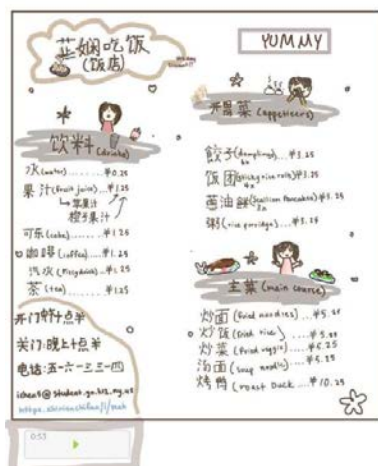 芷娴吃饭
(饭店)
YUMMY
饮料 (drinks)
水 (water) ........ ¥0.25
果汁 (fruit juice) ... ¥1.25
↳ 苹果汁
橙子果汁
可乐 (coke) ...... ¥1.25
咖啡 (coffee) .... ¥1.25
汽水 (fizzy drink) .. ¥1.25
茶 (tea) ¥1.25
开胃菜 (appetisers)
饺子 (dumplings) ... ¥3.25
6x
饭团 (sticky rice role) ¥3.25
4x
葱油餅 (scallion pancakes) ¥3.25
粥 (rice porridge) ... ¥3.25
主菜 (main course)
炒面 (fried noodles) ... ¥5.25
炒饭 (fried rice)
炒菜 (fried veggie) ... ¥6.25
汤面 (soup noodle) ... ¥5.25
烤鸭 (roast duck) ... ¥10.25
十点半
关门:晚上十点半
电话:五六一三三一四
0:53